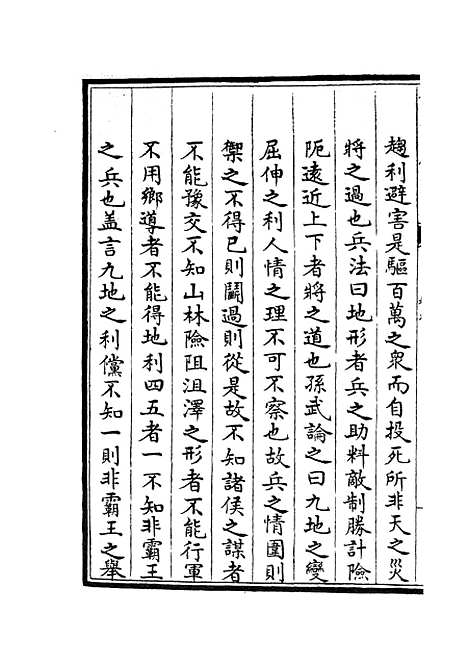 趨利避害是驅百萬之衆而自投死所非天之災
將之過也兵法曰地形者兵之助料敵制勝計險
阨遠近上下者將之道也孫武論之曰九地之變
屈伸之利人情之理不可不察也故兵之情圍則
禦之不得已則鬭過則從是故不知諸侯之謀者
不能豫交不知山林險阻沮澤之形者不能行軍
不用鄉導者不能得地利四五者一不知非霸王
之兵也盖言九地之利儻不知一則非霸王之舉